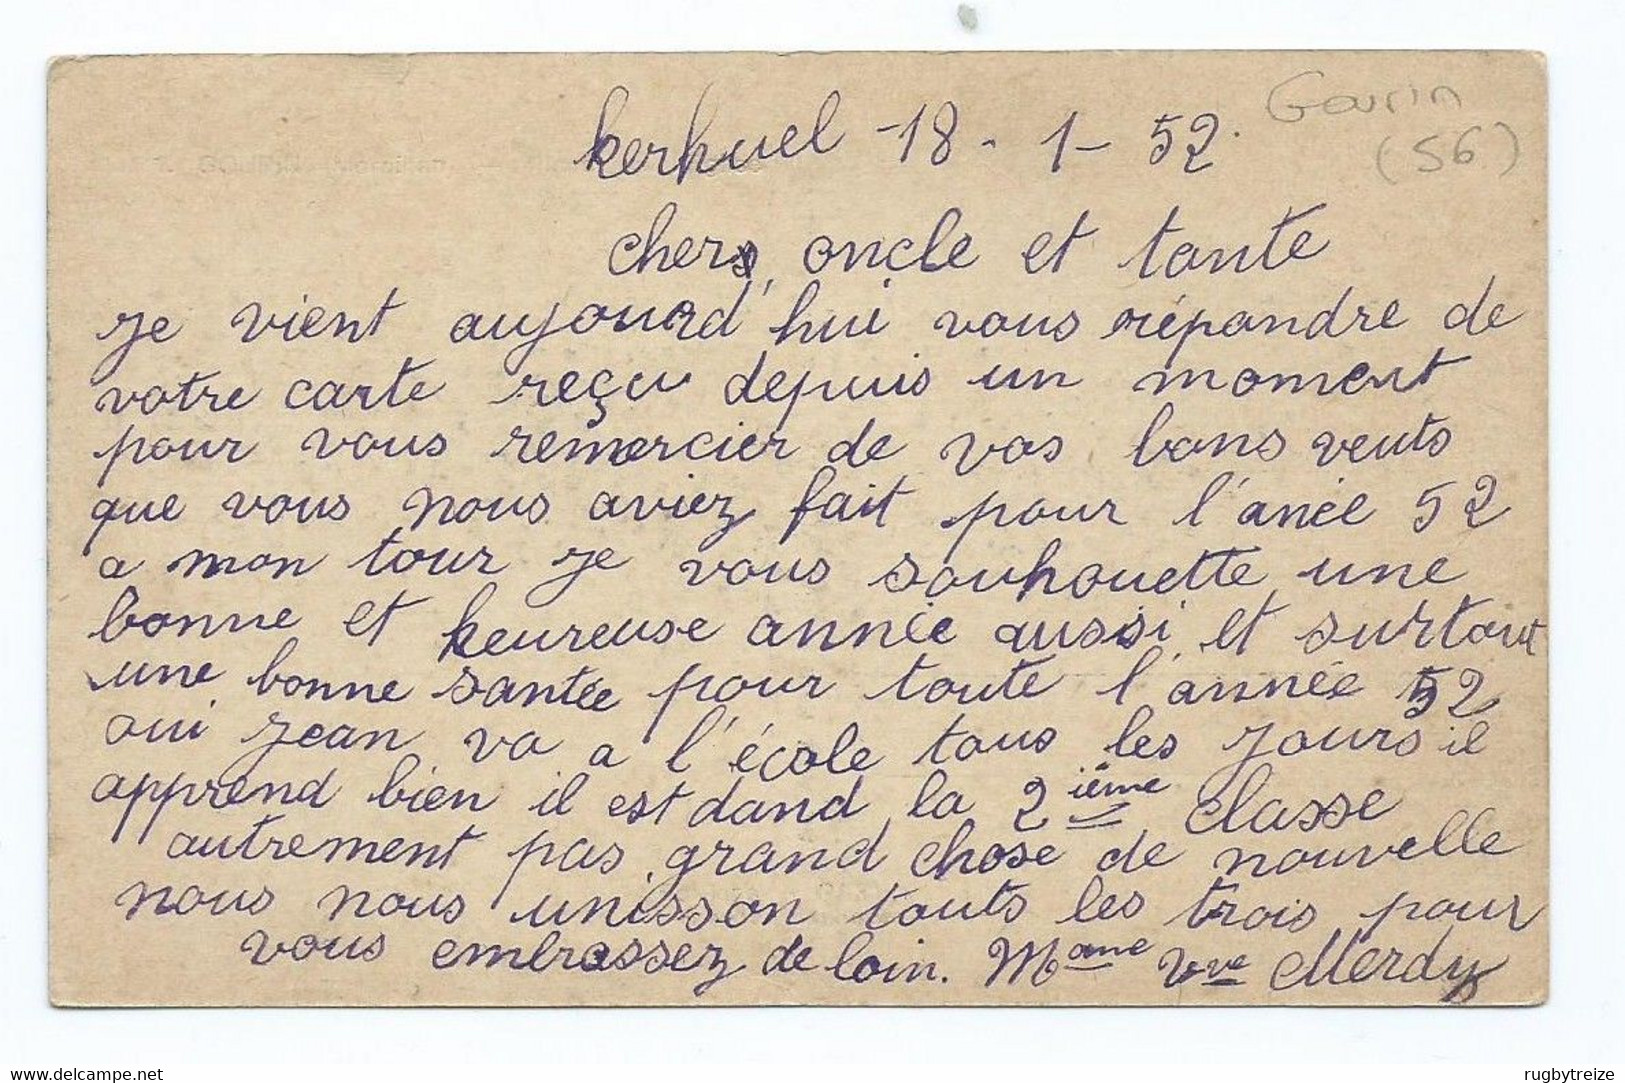 Kerhuel -18 - 1 - 52.
Gourin
(56)
chers, oncle et tante
je vient aujourd'hui vous répondre de
votre carte reçu depuis un moment
pour vous remercier de vos bons veuts
que vous nous aviez fait pour l'anée 52
a mon tour je vous souhouette une
bonne et heureuse année aussi et surtout
une bonne santée pour toute l'année 52
oui jean va a l'école tous les jours il
apprend bien il est dand la 2ième classe
autrement pas grand chose de nouvelle
nous nous unisson touts les trois pour
vous embrassez de loin. Mame Vve Merdy
www.delcampe.net
rugbytreize